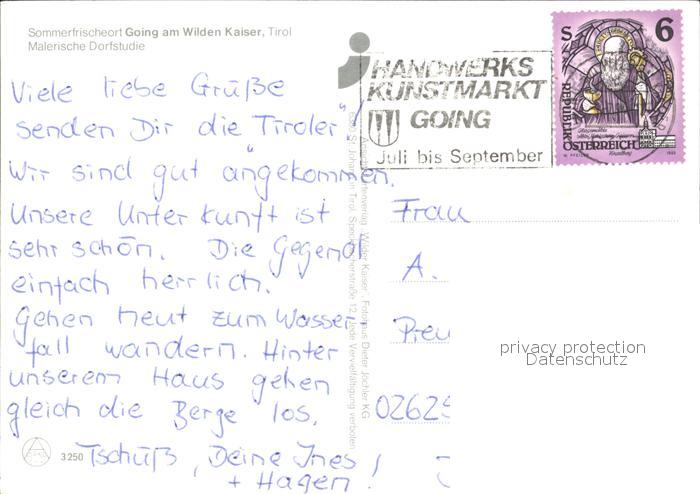 Sommerfrischeort Going am Wilden Kaiser, Tirol
Malerische Dorfstudie
Viele liebe Grüße
senden Dir die "Tiroler"!
Wir sind gut angekommen.
Unsere Unterkunft ist
sehr schön. Die Gegend
einfach herrlich.
Gehen heut zum Wasser
fall wandern. Hinter
unserem Haus gehen
gleich die Berge los.
Tschüß, Deine Ines
+ Hagen!
3250
HANDWERKS
KUNSTMARKT
GOING
Juli bis September
S 6
REPUBLIK
ÖSTERREICH
Frau
A.
Preu
02625
privacy protection
Datenschutz
Wilder Kaiser, Fotohaus Dieter Jöchler KG
St. Johann in Tirol, Speckbacherstraße 12, Jede Vervielfältigung verboten